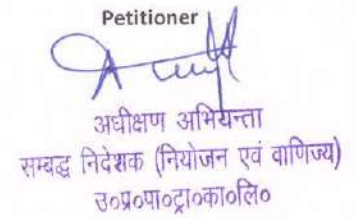 Petitioner
अधीक्षण अभियन्ता
सम्बद्ध निदेशक (नियोजन एवं वाणिज्य)
उ०प्र०पा०ट्रा०का०लि०